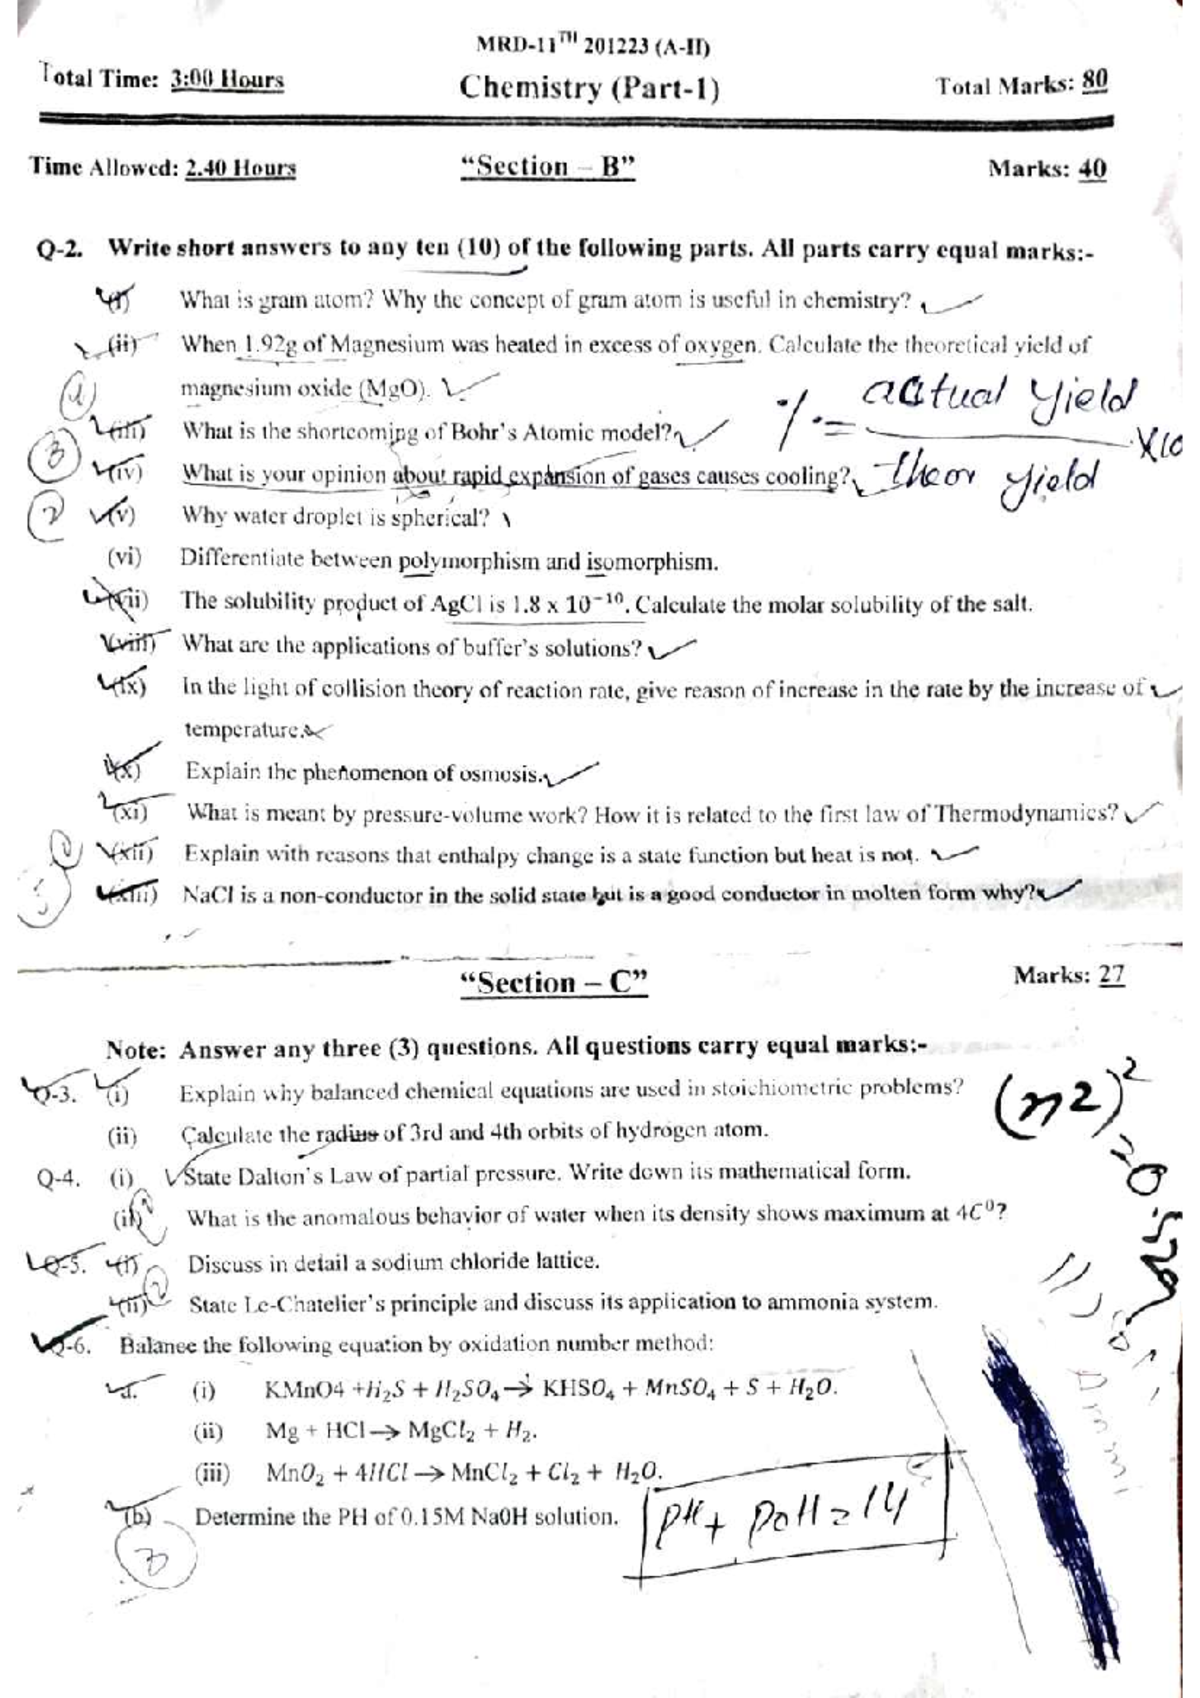 MRD-11TH 201223 (A-II)
Total Time: 3:00 Hours Chemistry (Part-1) Total Marks: 80
Time Allowed: 2.40 Hours "Section – B" Marks: 40
Q-2. Write short answers to any ten (10) of the following parts. All parts carry equal marks:-
(i) What is gram atom? Why the concept of gram atom is useful in chemistry?
(ii) When 1.92g of Magnesium was heated in excess of oxygen. Calculate the theoretical yield of
magnesium oxide (MgO).
% = actual yield
(iii) What is the shortcoming of Bohr's Atomic model?
(iv) What is your opinion about rapid expansion of gases causes cooling?
theor yield
(v) Why water droplet is spherical?
(vi) Differentiate between polymorphism and isomorphism.
(vii) The solubility product of AgCl is 1.8 x 10⁻¹⁰. Calculate the molar solubility of the salt.
(viii) What are the applications of buffer's solutions?
(ix) In the light of collision theory of reaction rate, give reason of increase in the rate by the increase of
temperature.
(x) Explain the phenomenon of osmosis.
(xi) What is meant by pressure-volume work? How it is related to the first law of Thermodynamics?
(xii) Explain with reasons that enthalpy change is a state function but heat is not.
(xiii) NaCl is a non-conductor in the solid state but is a good conductor in molten form why?
"Section – C" Marks: 27
Note: Answer any three (3) questions. All questions carry equal marks:-
Q-3. (i) Explain why balanced chemical equations are used in stoichiometric problems?
(n2)²
(ii) Calculate the radius of 3rd and 4th orbits of hydrogen atom.
Q-4. (i) State Dalton's Law of partial pressure. Write down its mathematical form.
(ii) What is the anomalous behavior of water when its density shows maximum at 4C⁰?
Q-5. (i) Discuss in detail a sodium chloride lattice.
(ii) State Le-Chatelier's principle and discuss its application to ammonia system.
Q-6. Balance the following equation by oxidation number method:
a. (i) KMnO4 +H₂S + H₂SO₄→ KHSO₄ + MnSO₄ + S + H₂O.
(ii) Mg + HCl→ MgCl₂ + H₂.
(iii) MnO₂ + 4HCl → MnCl₂ + Cl₂ + H₂O.
(b) Determine the PH of 0.15M NaOH solution.
PH + POH = 14